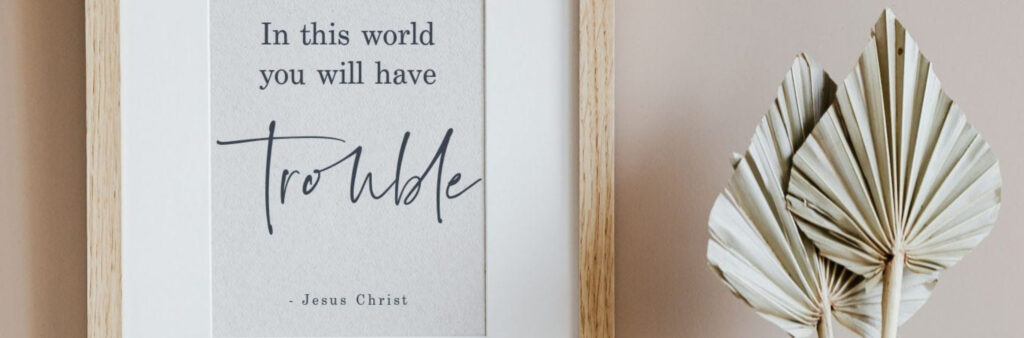 In this world
you will have
Trouble
- Jesus Christ